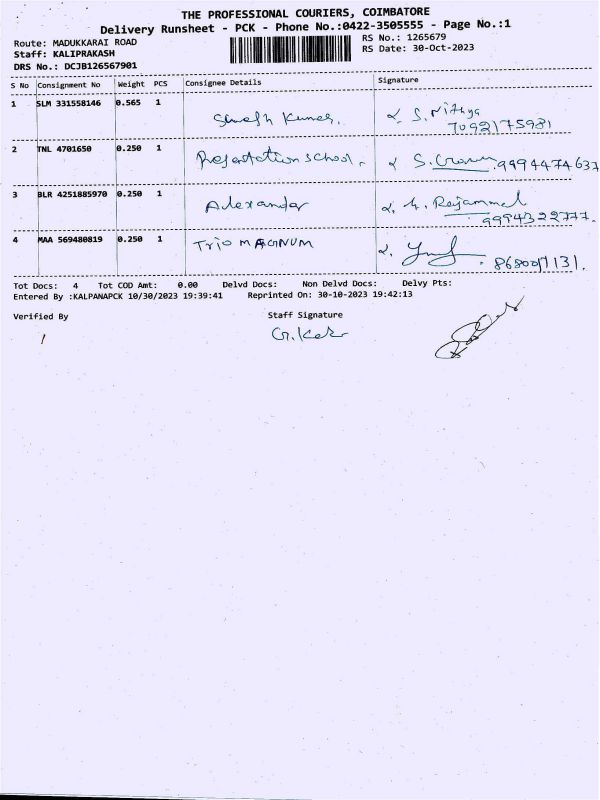 THE PROFESSIONAL COURIERS, COIMBATORE
Delivery Runsheet - PCK - Phone No.:0422-3505555 - Page No.:1
Route: MADUKKARAI ROAD
Staff: KALIPRAKASH
DRS No.: DCJB126567901
RS No.: 1265679
RS Date: 30-Oct-2023
S No Consignment No Weight PCS Consignee Details Signature
1 SLM 331558146 0.565 1 S. Nithya
7092175931
2 TNL 4701650 0.250 1 school. S. 9994474637
3 BLR 4251885970 0.250 1 Alexander Rajammal
9994322777.
4 MAA 569480819 0.250 1 Trio MAGNUM
Tot Docs: 4 Tot COD Amt: 0.00 Delvd Docs: Non Delvd Docs: Delvy Pts:
Entered By :KALPANAPCK 10/30/2023 19:39:41 Reprinted On: 30-10-2023 19:42:13
Verified By Staff Signature